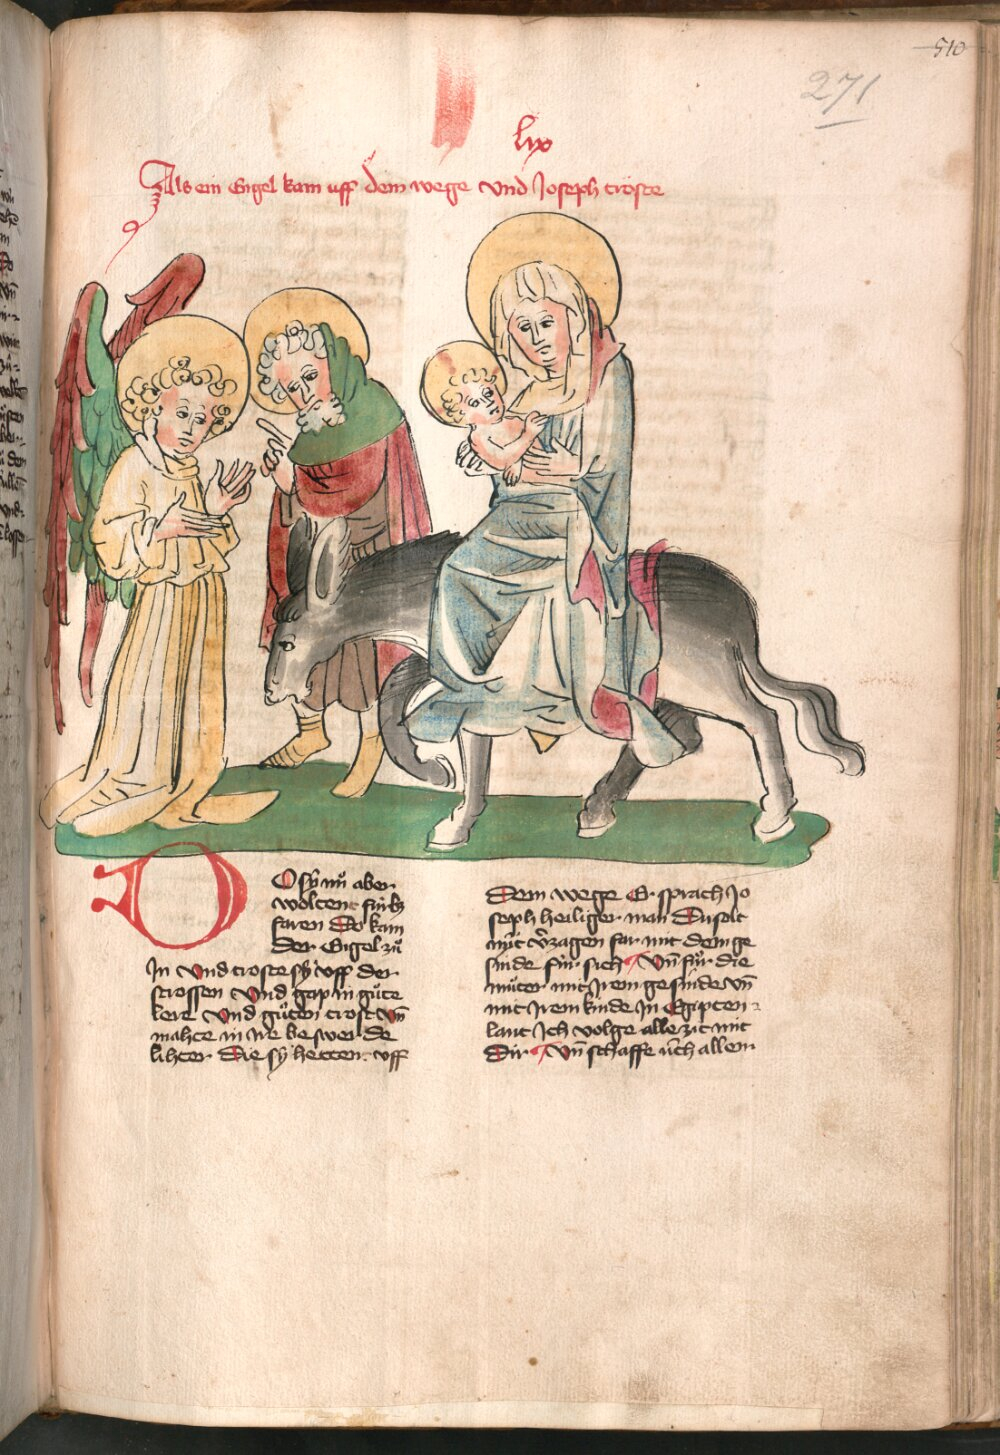 510
271
lix
Als ein Engel kam uff dem wege vnd Joseph tröste
DO sÿ nů aber
woltent fúrbz
faren Do kam
der Engel zů
In vnd troste sÿ vff der
strossen vnd gap in gůte
lere vnd gůten trost vn̄
mahte in ire beswerde
lihter Die sÿ hetten vff
Dem wege Er sprach Jo
seph heiliger man Du solt
nút v̂zagen far mit dem ge
sinde fúr sich Vn̄ fúr die
můter mit Irem gesinde vn̄
mit Irem kinde In Egipten
lant Ich volge alle zit mit
Dir Vn̄ schaffe úch allem